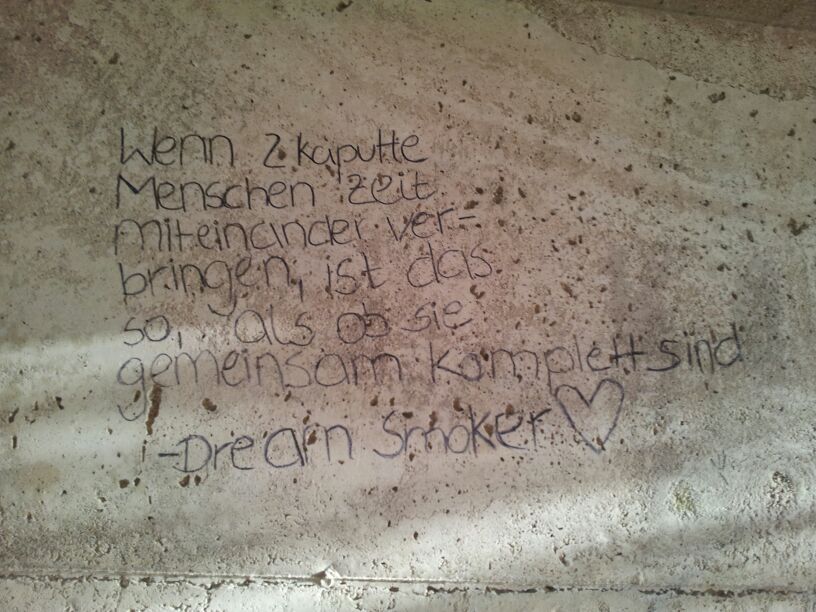 Wenn 2 kaputte
Menschen zeit
miteinander ver-
bringen, ist das
so, als ob sie
gemeinsam komplett sind
-Dream Smoker ♡